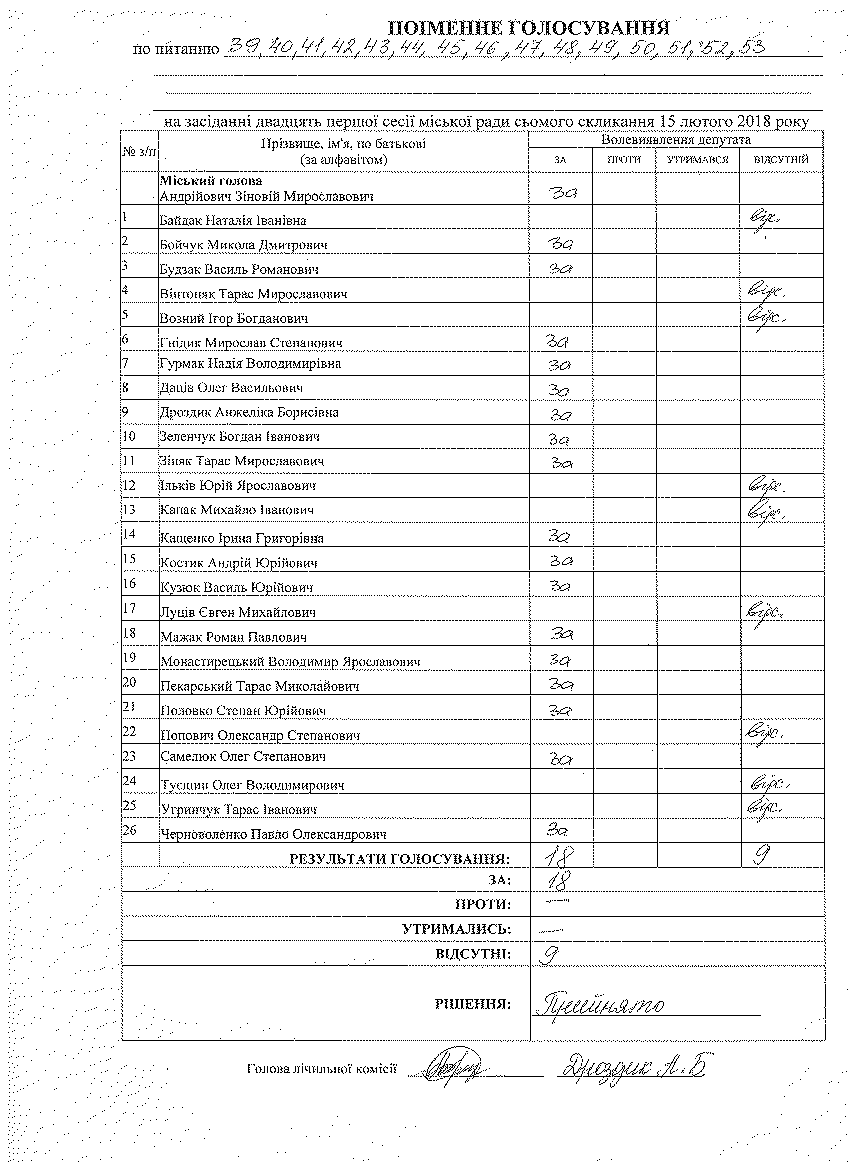 ПОІМЕННЕ ГОЛОСУВАННЯ
по питанню 39, 40, 41, 42, 43, 44, 45, 46, 47, 48, 49, 50, 51, 52, 53
на засіданні двадцять першої сесії міської ради сьомого скликання 15 лютого 2018 року
№ з/п Прізвище, ім'я, по батькові (за алфавітом) Волевиявлення депутата
ЗА ПРОТИ УТРИМАВСЯ ВІДСУТНІЙ
Міський голова
Андрійович Зіновій Мирославович за
1 Байдак Наталія Іванівна відс.
2 Бойчук Микола Дмитрович за
3 Будзак Василь Романович за
4 Вінтоняк Тарас Мирославович відс.
5 Возний Ігор Богданович відс.
6 Гнідик Мирослав Степанович за
7 Гурмак Надія Володимирівна за
8 Даців Олег Васильович за
9 Дроздик Анжеліка Борисівна за
10 Зеленчук Богдан Іванович за
11 Зіняк Тарас Мирославович за
12 Ільків Юрій Ярославович відс.
13 Капак Михайло Іванович відс.
14 Кащенко Ірина Григорівна за
15 Костик Андрій Юрійович за
16 Кузюк Василь Юрійович за
17 Луців Євген Михайлович відс.
18 Мажак Роман Павлович за
19 Монастирецький Володимир Ярославович за
20 Пекарський Тарас Миколайович за
21 Половко Степан Юрійович за
22 Попович Олександр Степанович відс.
23 Самелюк Олег Степанович за
24 Олег Володимирович відс.
25 Угринчук Тарас Іванович відс.
26 Черноволенко Павло Олександрович за
РЕЗУЛЬТАТИ ГОЛОСУВАННЯ: 18 9
ЗА: 18
ПРОТИ: —
УТРИМАЛИСЬ: —
ВІДСУТНІ: 9
РІШЕННЯ: Прийнято
Голова лічильної комісії Дроздик А. Б